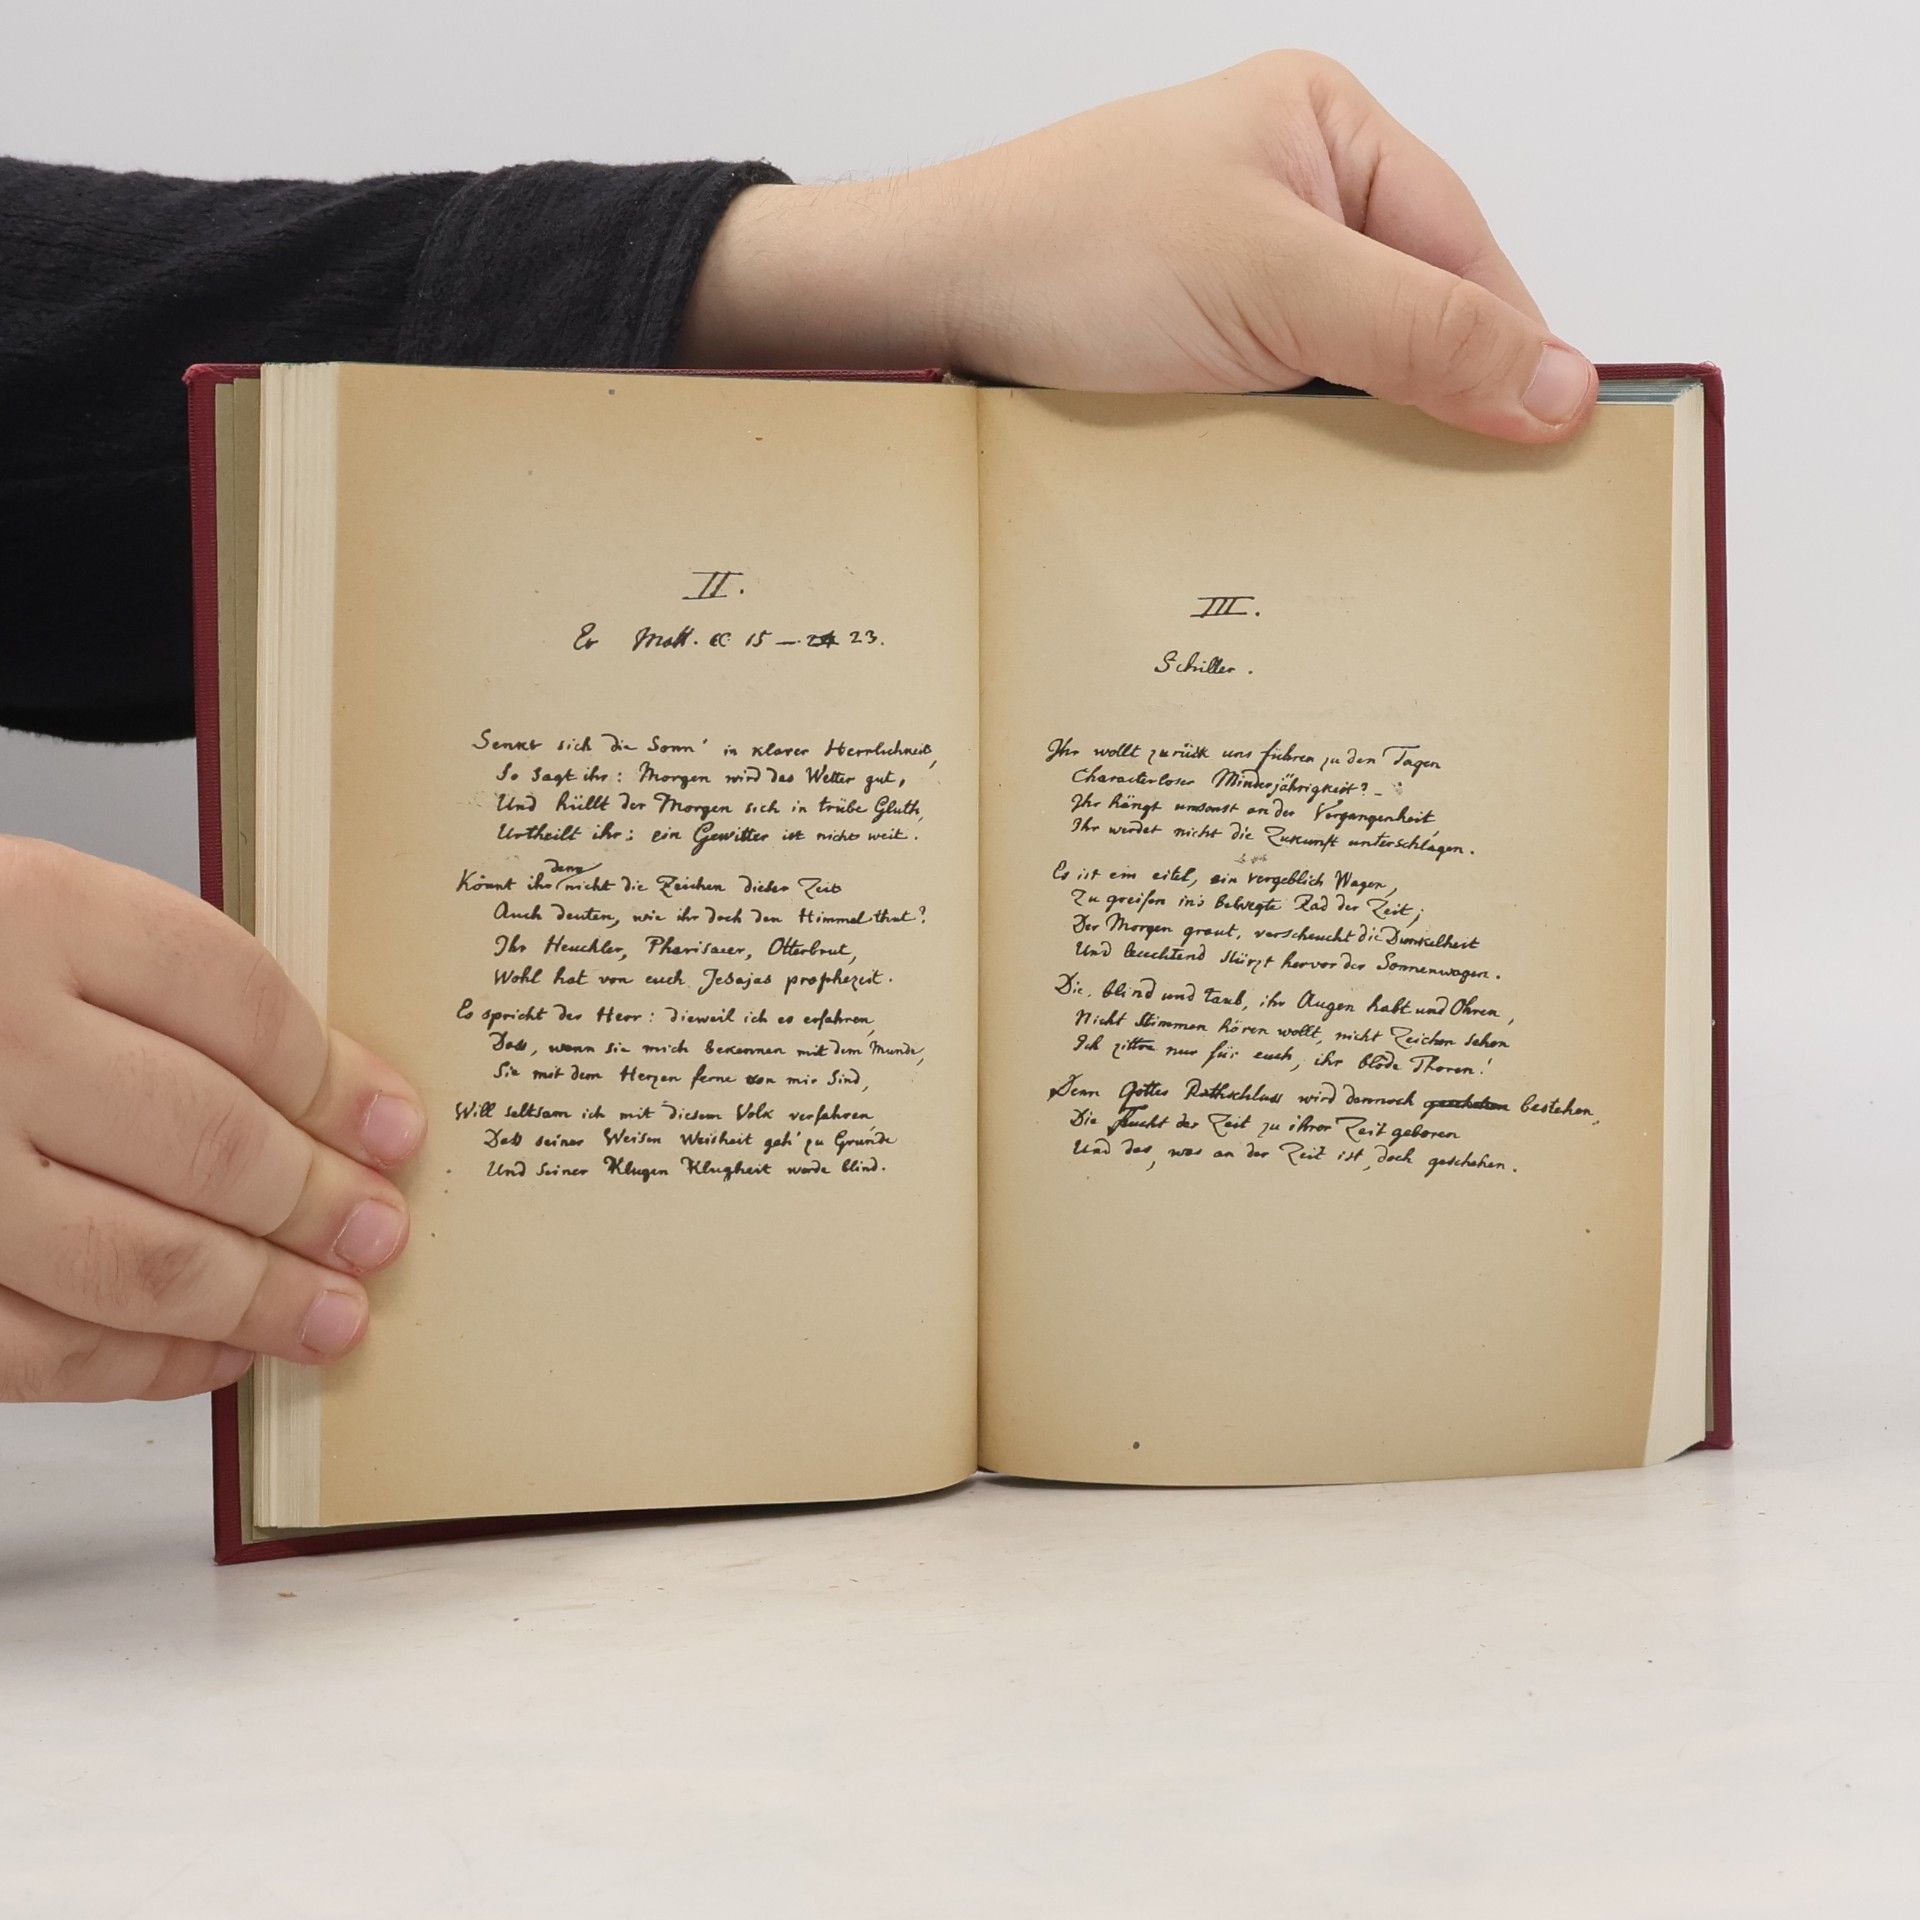 II.
Ev Matt. 15 — 23.
Senkt sich die Sonn' in klarer Herrlichkeit,
So sagt ihr: Morgen wird das Wetter gut,
Und hüllt der Morgen sich in trübe Gluth,
Urtheilt ihr: ein Gewitter ist nicht weit.
denn
Könnt ihr nicht die Zeichen dieser Zeit
Auch deuten, wie ihr doch den Himmel thut?
Ihr Heuchler, Pharisaeer, Otterbrut,
Wohl hat von euch Jesajas prophezeit.
Es spricht der Herr: dieweil ich es erfahren,
Dass, wenn sie mich bekennen mit dem Munde,
Sie mit dem Herzen ferne von mir sind,
Will seltsam ich mit diesem Volk verfahren,
Dass seiner Weisen Weisheit geh' zu Grunde
Und seiner Klugen Klugheit werde blind.
III.
Schiller.
Ihr wollt zurück uns führen zu den Tagen
Characterloser Minderjährigkeit? –
Ihr hängt umsonst an der Vergangenheit,
Ihr werdet nicht die Zukunft unterschlagen.
Es ist ein eitel, ein vergeblich Wagen,
Zu greifen in's bewegte Rad der Zeit;
Der Morgen graut, verscheucht die Dunkelheit
Und leuchtend stürzt hervor der Sonnenwagen.
Die, blind und taub, ihr Augen habt und Ohren,
Nicht Stimmen hören wollt, nicht Zeichen sehen
Ich zittre nur für euch, ihr blöde Thoren!
Denn Gottes Rathschluss wird dennoch bestehen,
Die Frucht der Zeit zu ihrer Zeit geboren
Und das, was an der Zeit ist, doch geschehen.